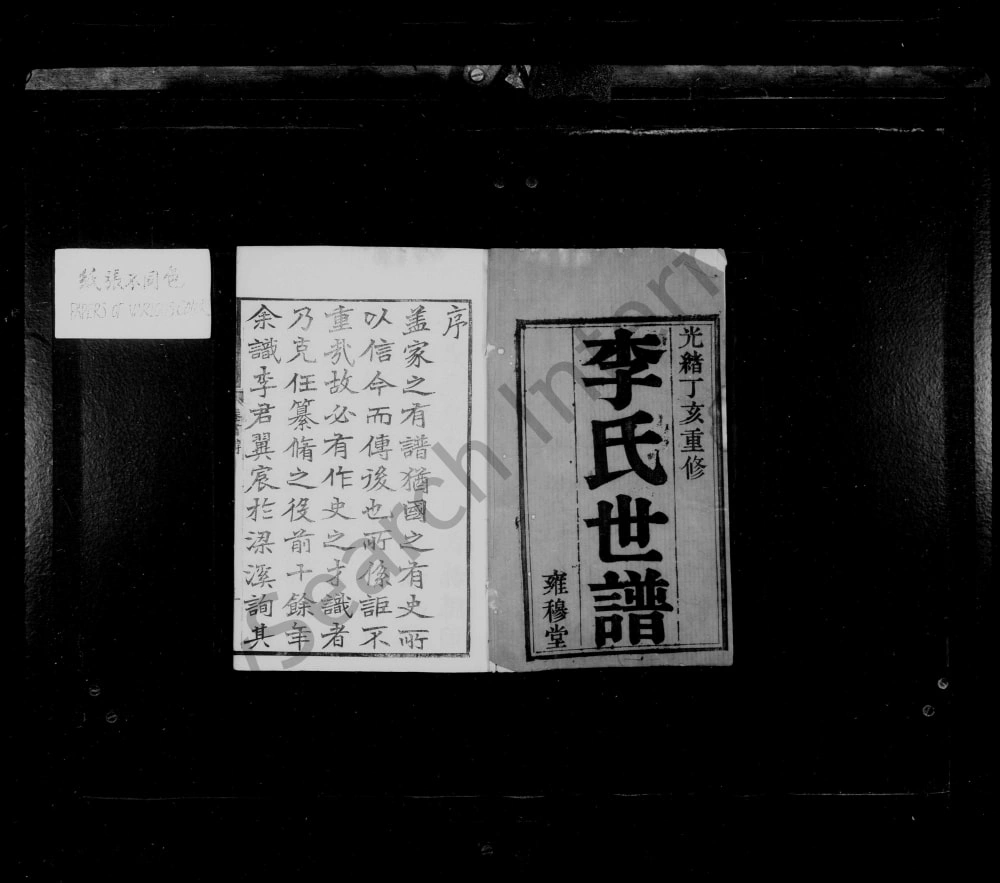 光緒丁亥重修
李氏世譜
雍穆堂
序
蓋家之有譜猶國之有史所
以信今而傳後也所係詎不
重哉故必有作史之才識者
乃克任纂脩之役前十餘年
余識李君翼宸於梁溪詢其
紙張不同色
PAPERS OF VARIOUS COLOR
Search Intern